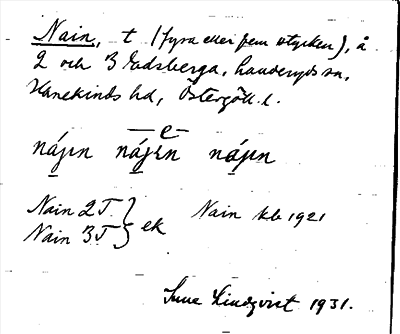 Nain, t (fyra eller fem stycken), å
2 och 3 Tadsberga, Landeryds sn,
Hanekinds hd, Östergötl. l.
—e—
nájɪn nájɛn nájɪn
Nain 2 T.
Nain 3 T. } ek Nain kb 1921
Sune Lindqvist 1931.